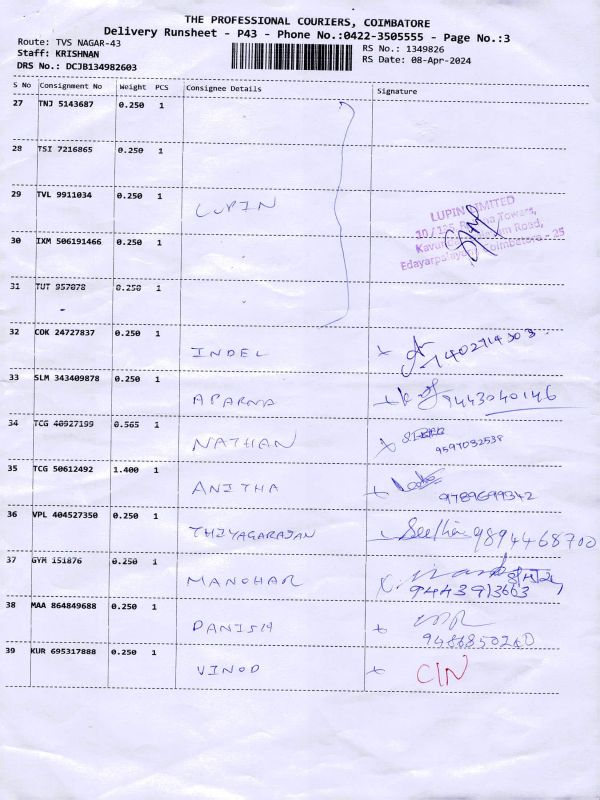 THE PROFESSIONAL COURIERS, COIMBATORE
Delivery Runsheet - P43 - Phone No.:0422-3505555 - Page No.:3
Route: TVS NAGAR-43 RS No.: 1349826
Staff: KRISHNAN RS Date: 08-Apr-2024
DRS No.: DCJB134982603
S No Consignment No Weight PCS Consignee Details Signature
27 TNJ 5143687 0.250 1
28 TSI 7216865 0.250 1
29 TVL 9911034 0.250 1
LUPIN
LUPIN LIMITED
Towers,
Road,
Coimbatore - 25
30 IXM 506191466 0.250 1
31 TUT 957078 0.250 1
32 COK 24727837 0.250 1
INDEL 7402714303
33 SLM 343409878 0.250 1
APARNA 9443040146
34 TCG 40927199 0.565 1
NATHAN 9597032538
35 TCG 50612492 1.400 1
ANITHA 9789699342
36 VPL 404527350 0.250 1
THIYAGARAJAN 9894468700
37 GYM 151876 0.250 1
MANOHAR 9443913663
38 MAA 864849688 0.250 1
39 KUR 695317888 0.250 1
VINOD CIN